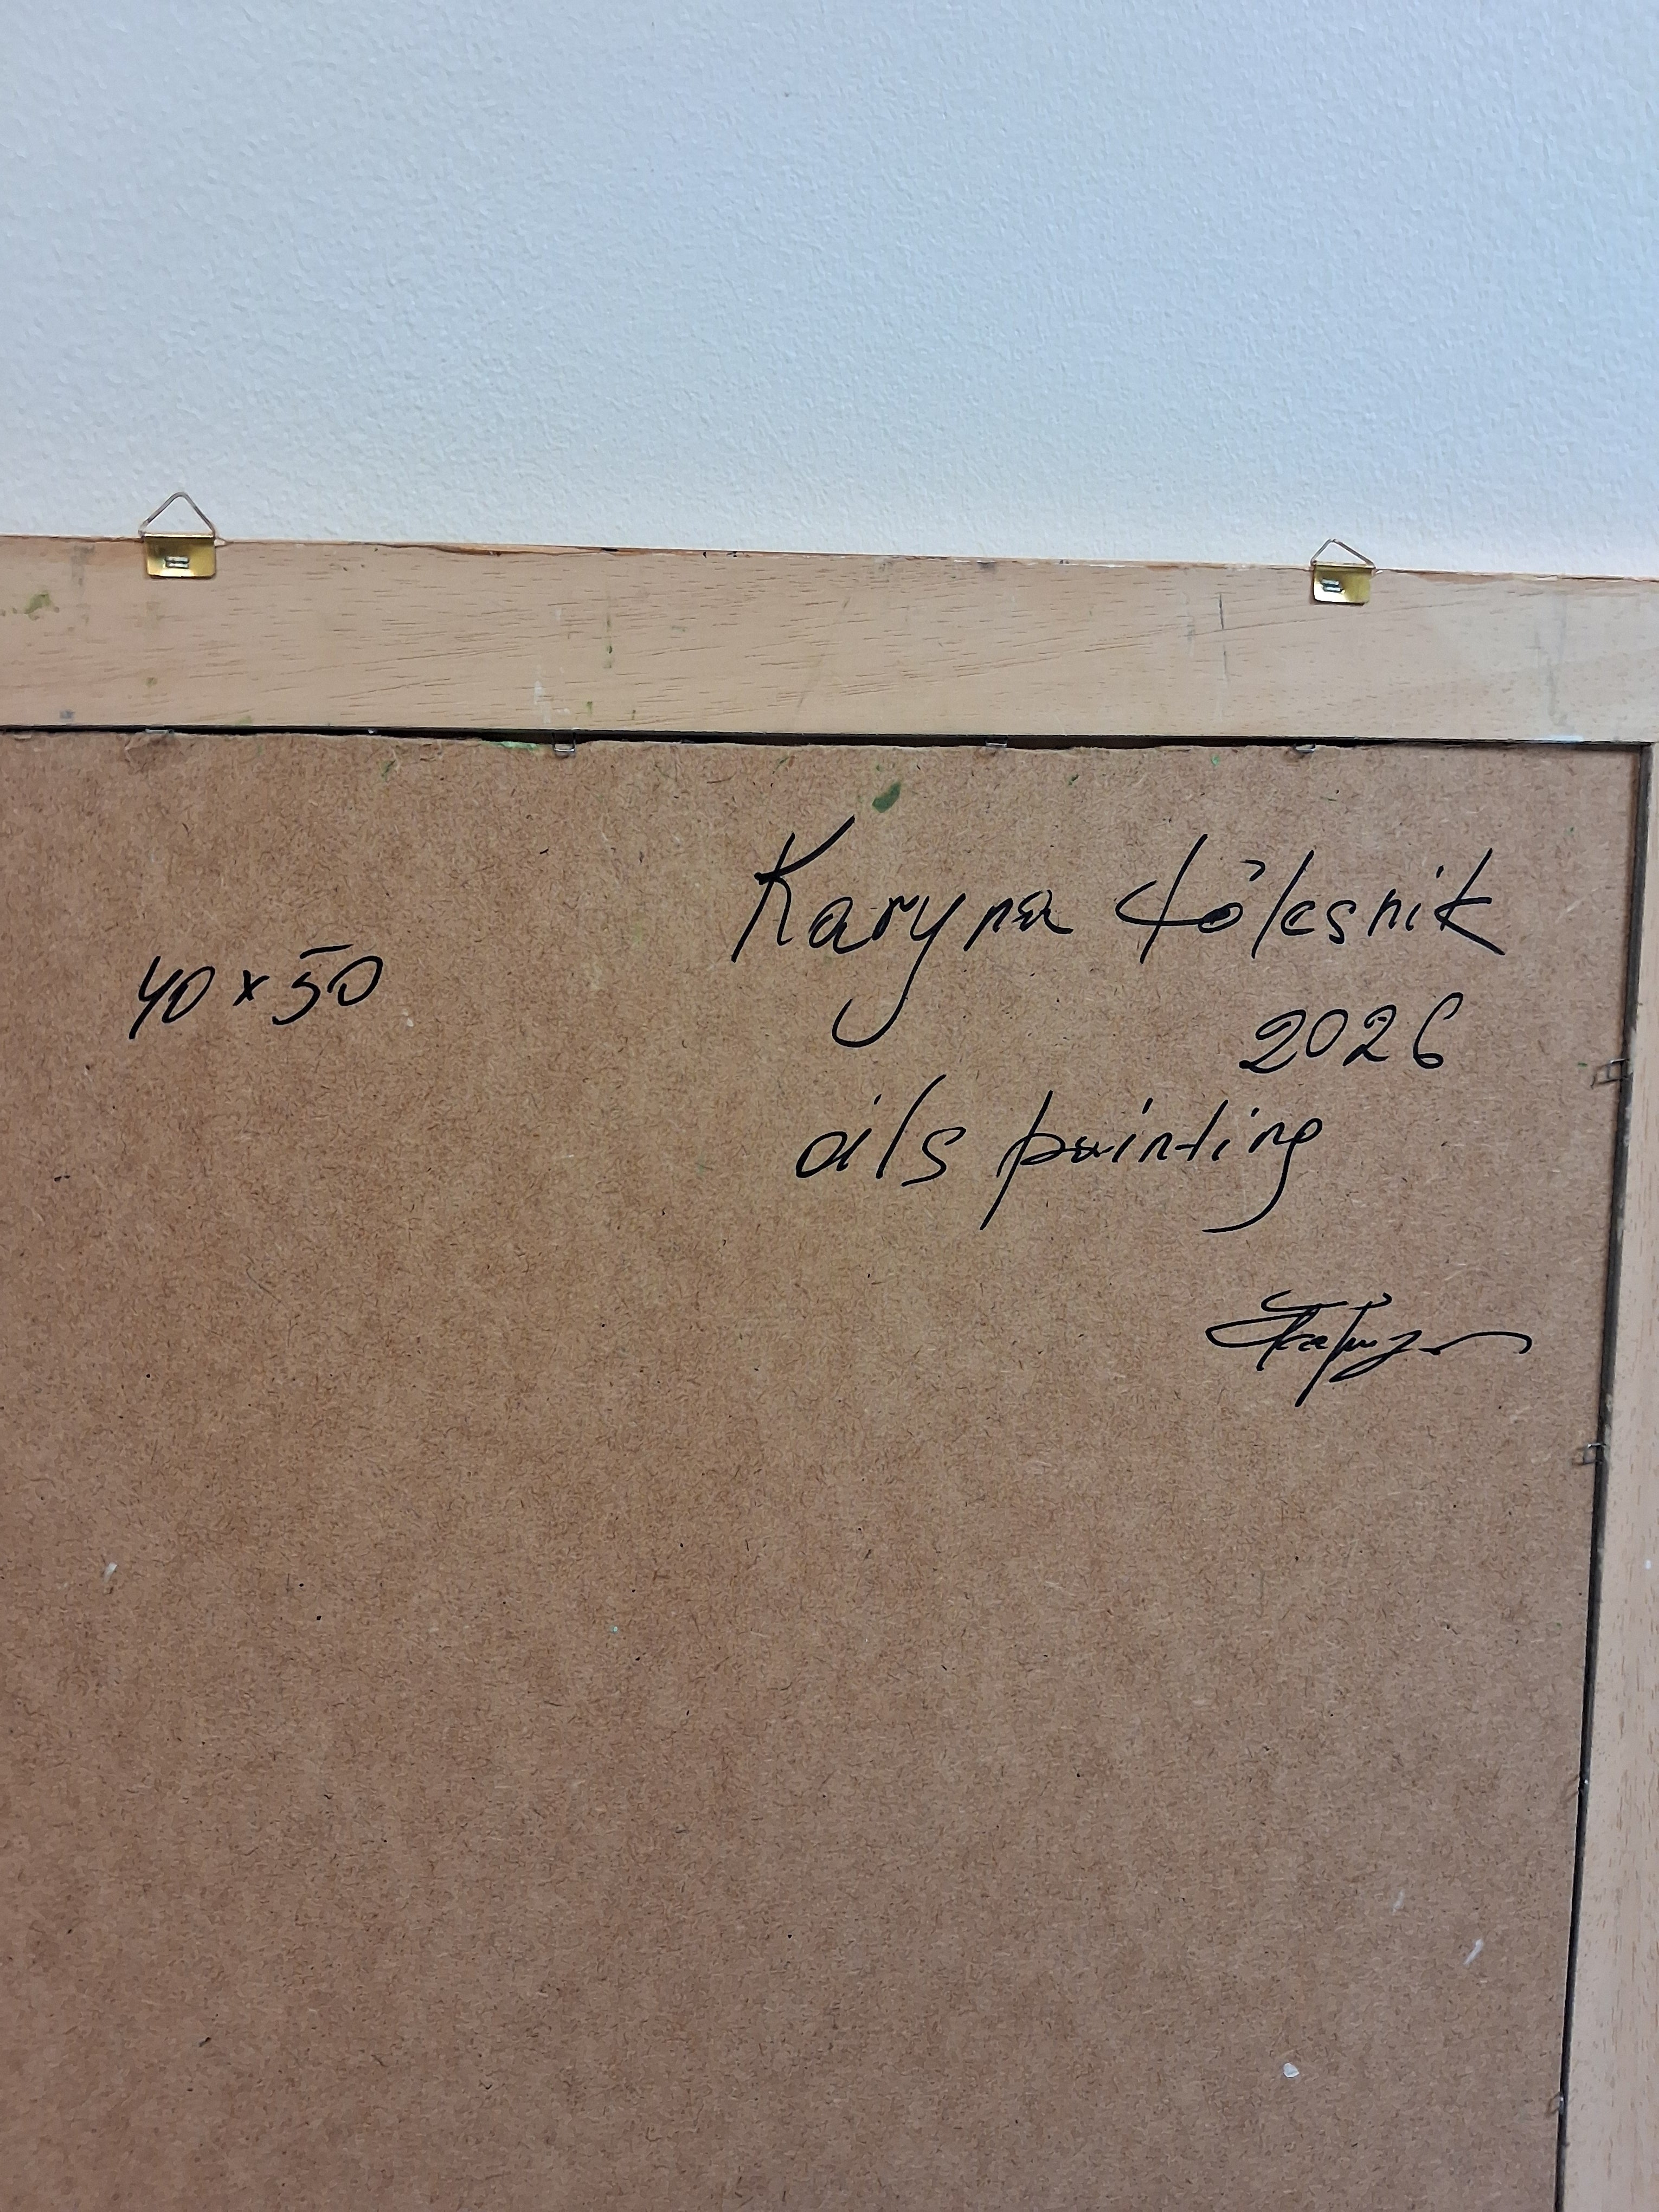 Karyna Kolesnik
40 x 50
2026
oils painting